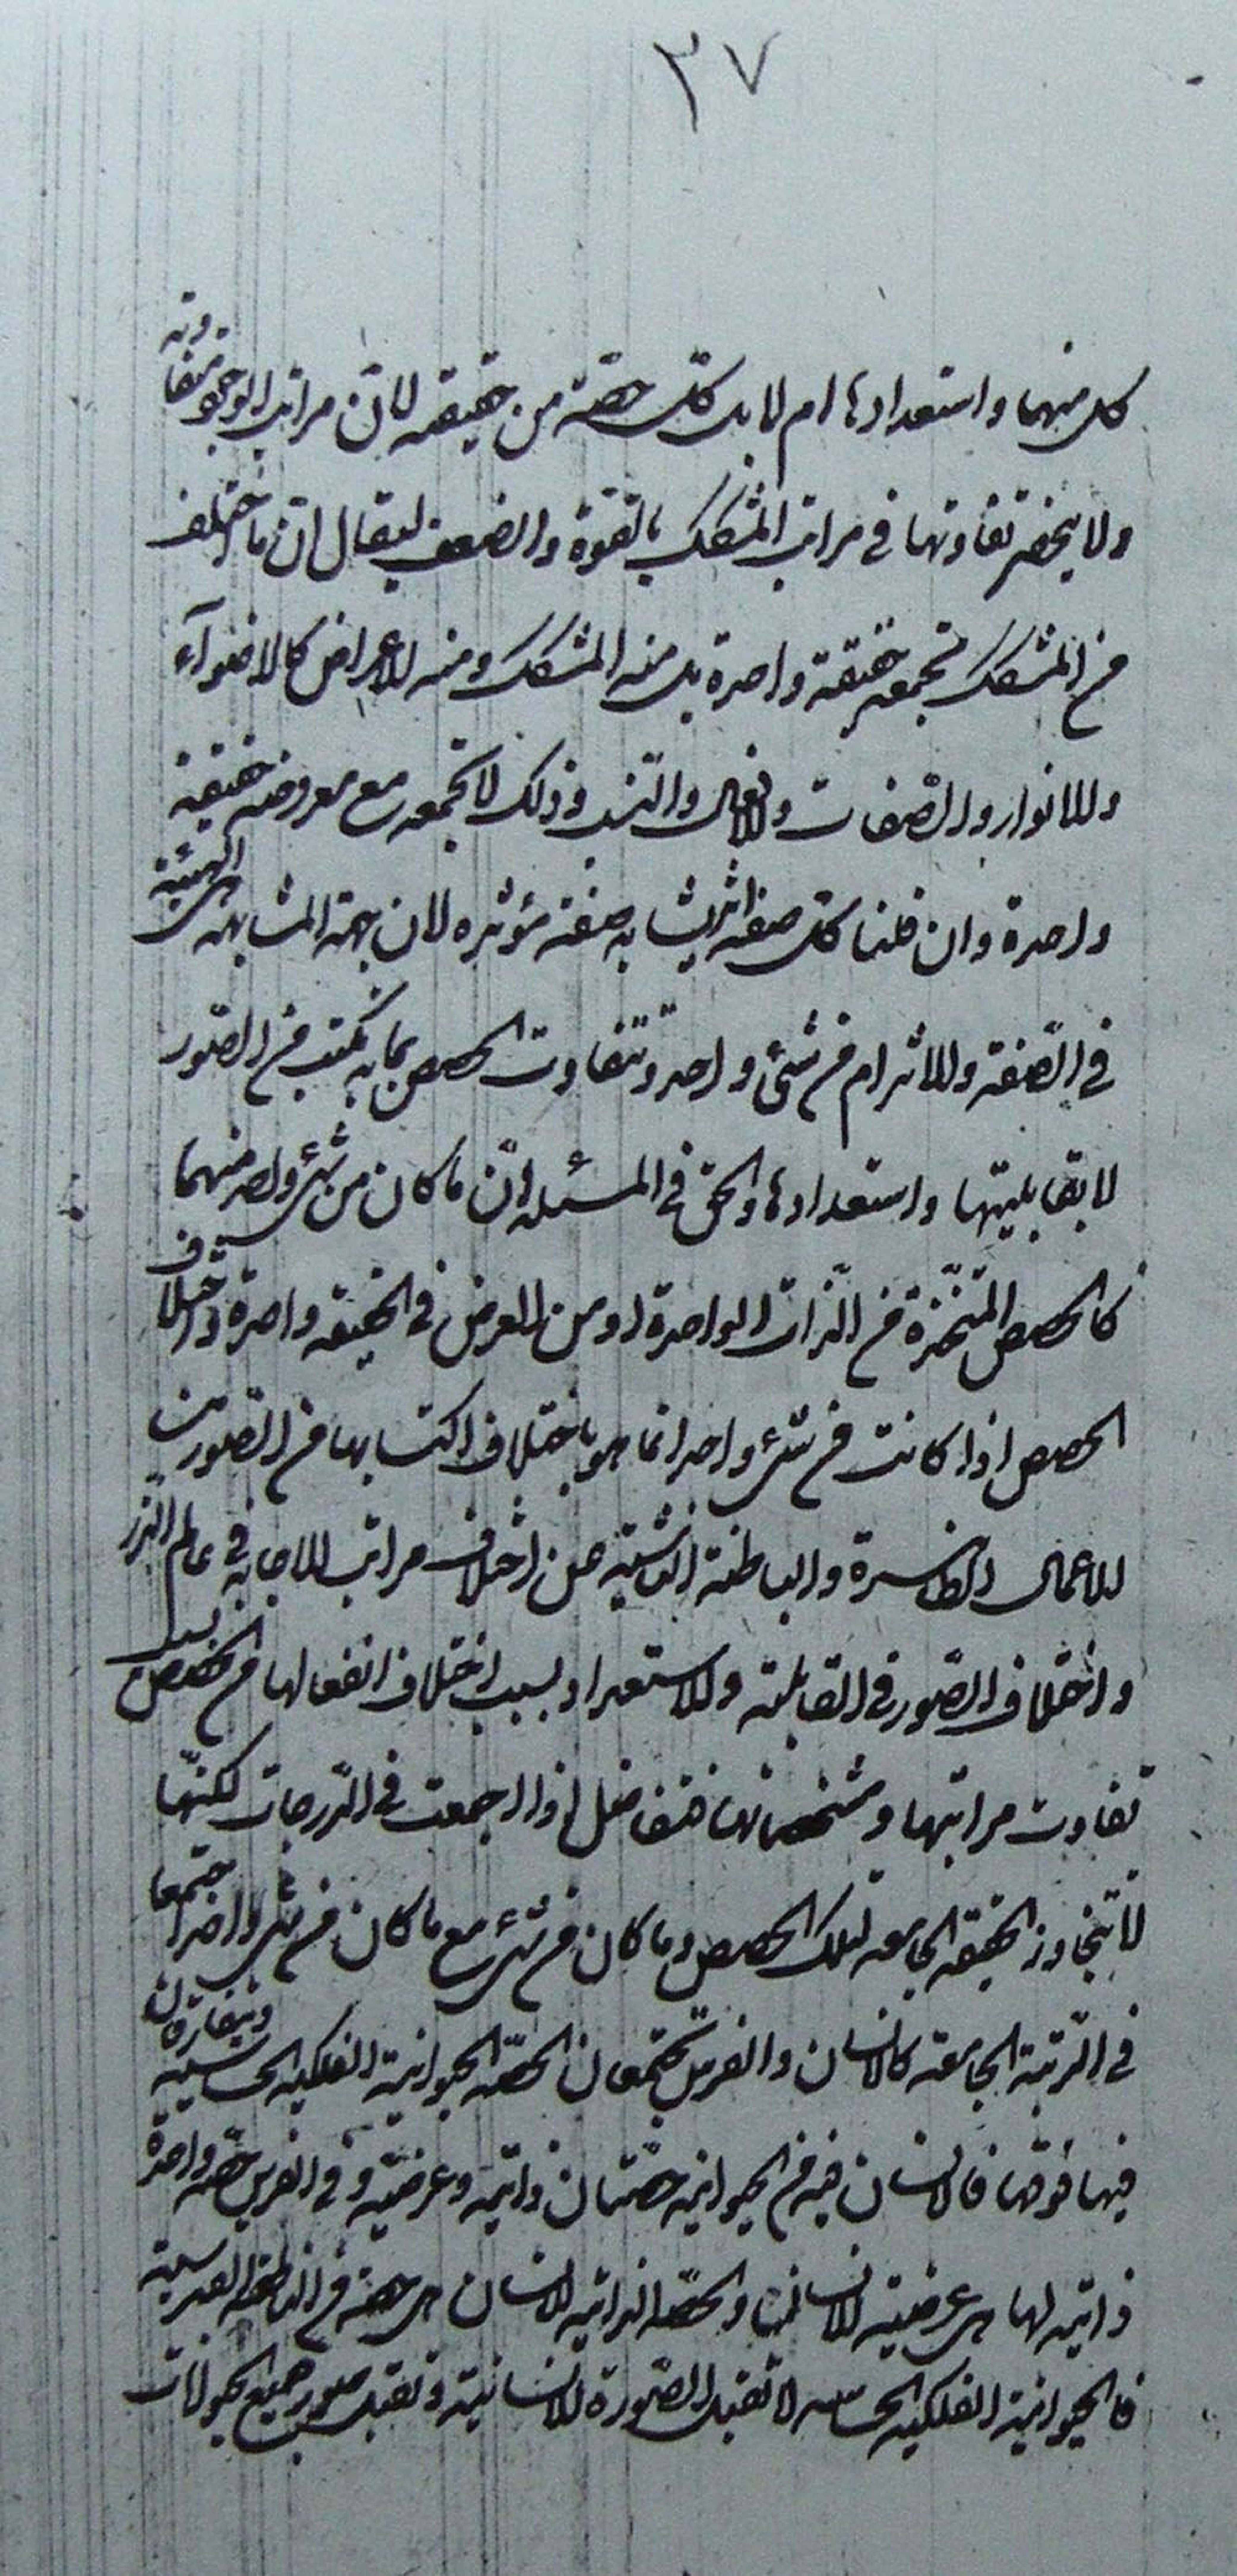 ٣٧
كل منهما واستعدادها ام لا بل كل حصّة من حقيقة لان مراتب الوجود متفاوتة
ولا ينحصر تفاوتها في مراتب المشكك بالقوة والضعف ليقال ان ما اختلف
من المشكك تجمعه حقيقة واحدة بل منه المشكك ومنه الاعراض كالاضوآء
والانوار والصفات والافعال والنسب وذلك لا تجمعه مع معروضه حقيقة
واحدة وان قلنا كل صفة اثر يشابه صفة مؤثره لان جهة المشابهة هي الهيئة
في الصفة والاثر ام من شئ واحد وتتفاوت الحصص بما به تكتب من الصور
لا بقابليتها واستعدادها والحق في المسئلة انّ ما كان من شئ واحد منهما
كالحصص المتخذة من الذات الواحدة او من العرض في الحقيقة واحدة واختلاف
الحصص اذا كانت من شئ واحد انما هو باختلاف اكتسابها من الصور من
الاعمال الظاهرة والباطنة الناشئة من اختلاف مراتب الاجابة في عالم الذر
واختلاف الصور في القابلية والاستعداد بسبب اختلاف انفعالها من الحصص
تفاوت مراتبها ومشخصاتها فتفاضل اذا اجمعت في الدرجات لكنّها
لا تتجاوز الحقيقة الجامعة لتلك الحصص وما كان من شئ مع ما كان من شئ واحد اجتمعا
في الرتبة الجامعة كالانسان والفرس يجتمعان الحصّة الحيوانية الفلكية الحساسية ويتفارقان
فيها فوقها فالانسان فيه من الحيوانية حصّتان ذاتية وعرضية وفي الفرس حصّة واحدة
ذاتية لها هي عرضية الانسان والحصّة الذاتية للانسان هي حصّة من الناطقة القدسية
فالحيوانية الفلكية الحساسة لا تقبل الصورة الانسانية وتقبل صور جميع الحيوانات